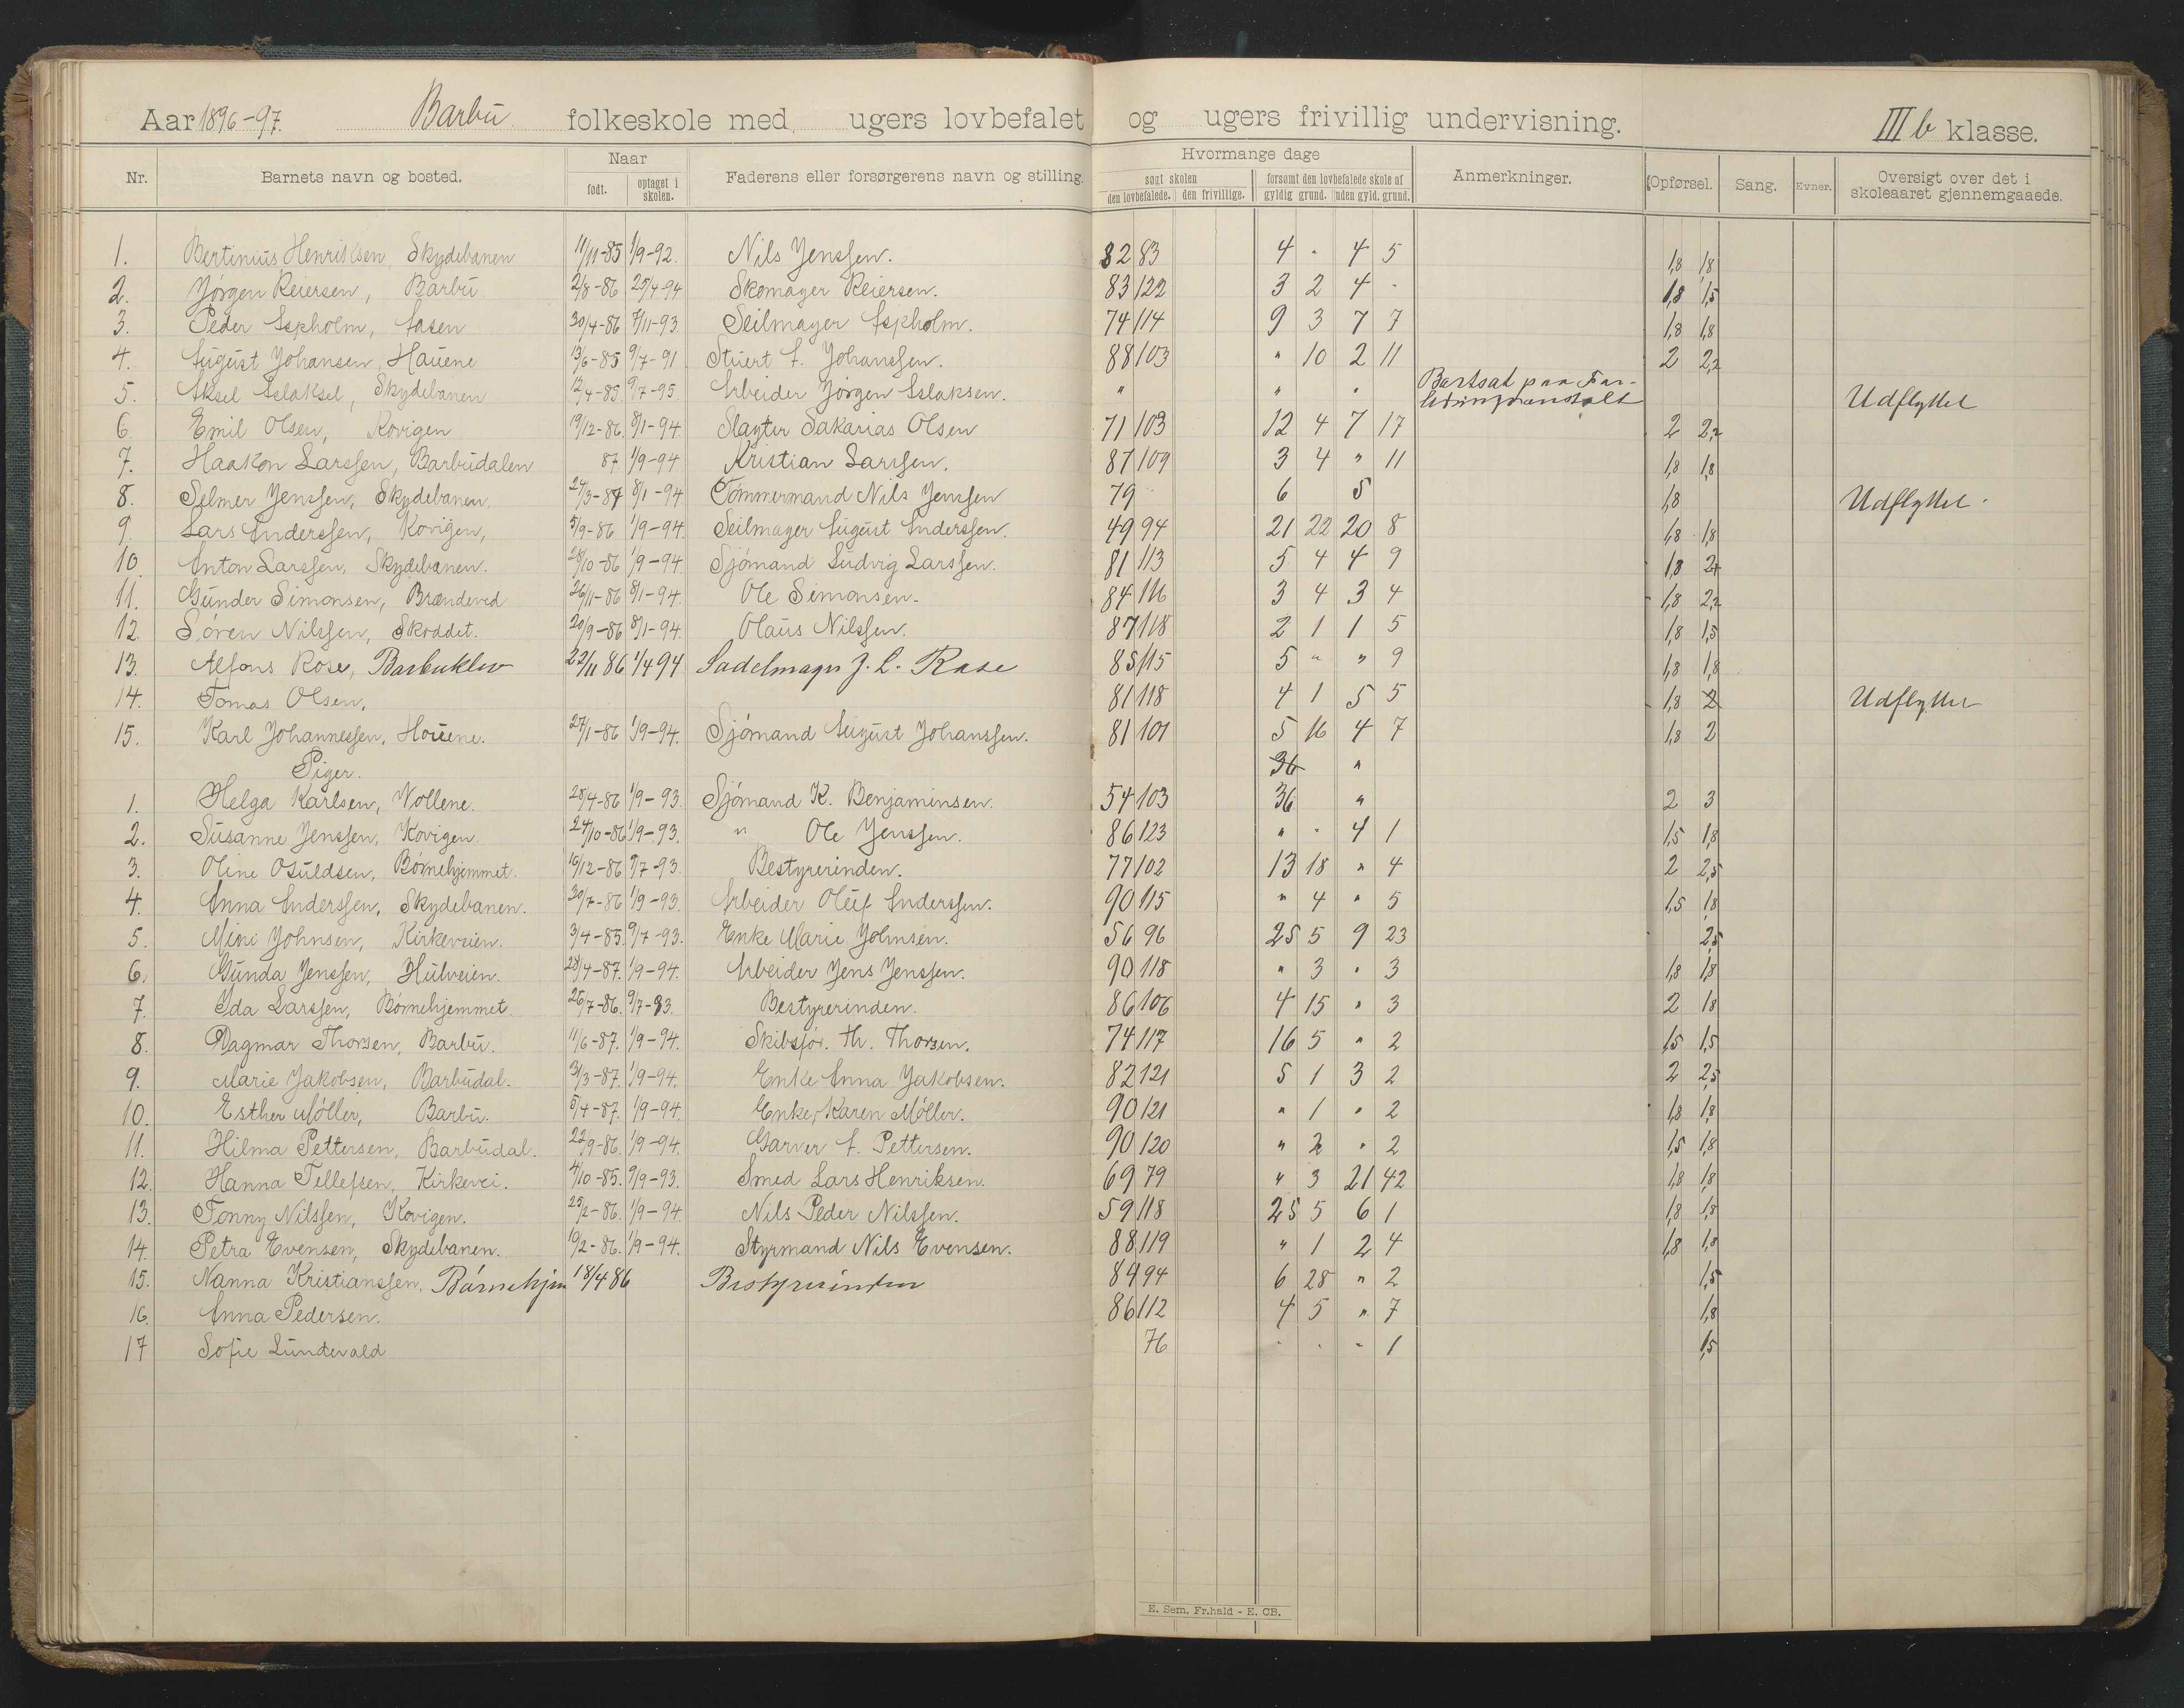 Aar 1896-97. Barbu folkeskole med ugers lovbefalet og ugers frivillig undervisning. III b klasse.
Nr. Barnets navn og bosted. Naar født. optaget i skolen. Faderens eller forsørgerens navn og stilling. Hvormange dage søgt skolen den lovbefalede. den frivillige. forsømt den lovbefalede skole af gyldig grund. uden gyld. grund. Anmerkninger. Opførsel. Sang. Evner. Oversigt over det i skoleaaret gjennemgaaede.
1. Bertinius Henriksen, Skydebanen 11/11-85 1/9-92. Nils Jenssen. 82 83 4 " 4 5 1,8 1,8
2. Jörgen Reiersen, Barbu 2/8-86 25/4-94 Skomager Reiersen. 83 122 3 2 4 " 1,8 1,5
3. Peder Aspholm, Aasen 30/4-86 7/11-93. Seilmager Aspholm. 74 114 9 3 7 7 1,8 1,8
4. August Johansen, Hauene 13/6-85 9/7-91 Stuert A. Johanssen. 88 103 " 10 2 11 2 2,2
5. Aksel Aslaksel, Skydebanen 12/4-85. 9/7-95 Arbeider Jörgen Aslaksen. " " " Bortsat paa For- Udflyttet
6 Emil Olsen, Kovigen 19/12-86. 8/1-94. Slagter Sakarias Olsen 71 103 12 4 7 17 2 2,2
7. Haakon Larssen, Barbudalen 87. 1/9-94 Kristian Larssen. 87 109 3 4 " 11 1,8 1,8
8. Selmer Jenssen, Skydebanen. 24/3-87 8/1-94 Tömmermand Nils Jenssen 79 6 5 1,8 Udflyttet.
9. Lars Anderssen, Kovigen, 5/9-86 1/9-94. Seilmager August Anderssen. 49 94 21 22 20 8 1,8 1,8
10. Anton Larssen, Skydebanen. 28/10-86 1/9-94. Sjömand Ludvig Larssen. 81 113 5 4 4 9 1,8 2
11. Gunder Simonsen, Brændeved 26/11-86 8/1-94. Ole Simonsen. 84 116 3 4 3 4 1,8 2,2
12. Sören Nilssen, Skoddet. 20/9-86 8/1-94. Olaus Nilssen. 87 118 2 1 1 5 1,8 1,5
13. Alfons Rose, Barbuklev 22/11 86 1/4 94 Sadelmager J. L. Rose 85 115 5 " " 9 1,8 1,8
14. Tomas Olsen, 81 118 4 1 5 5 1,8 2 Udflyttet
15. Karl Johannessen, Houene. 27/1-86 1/9-94. Sjömand August Johanssen. 81 101 5 16 4 7 1,8 2
Piger. 36 "
1. Helga Karlsen, Vollene. 28/4-86 1/9-93. Sjömand K. Benjaminsen. 54 103 36 " 2 3
2. Susanne Jenssen, Kovigen. 24/10-86 1/9-93. " Ole Jenssen. 86 123 " " 4 1 1,5 1,8
3. Oline Osuldsen, Börnehjemmet. 16/12-86 9/7-93. Bestyrerinden. 77 102 13 18 " 4 2 2,5
4. Anna Anderssen, Skydebanen. 30/7-86 1/9-93. Arbeider Oluf Anderssen. 90 115 " 4 " 5 1,5 1,8
5. Mini Johnsen, Kirkeveien. 3/4-85. 9/7-93. Enke Marie Johnsen. 56 96 25 5 9 23 2,5
6. Gunda Jenssen, Hulveien. 28/4-87. 1/9-94. Arbeider Jens Jenssen. 90 118 " 3 " 3 1,8 1,8
7. Ida Larssen, Börnehjemmet. 26/7-86. 9/7-93. Bestyrerinden. 86 106 4 15 " 3 2 1,8
8. Dagmar Thorsen, Barbu. 11/6-87. 1/9-94. Skibsför. Th. Thorsen. 74 117 16 5 " 2 1,5 1,5
9. Marie Jakobsen, Barbudal. 31/3-87. 1/9-94. Enke Anna Jakobsen. 82 121 5 1 3 2 2 2,5
10. Esther Möller, Barbu. 5/4-87. 1/9-94. Enke, Karen Möller. 90 121 " 1 " 2 1,8 1,8
11. Hilma Pettersen, Barbudal. 22/9-86. 1/9-94. Garver A. Pettersen. 90 120 " 2 " 2 1,5 1,8
12. Hanna Tellefsen, Kirkevei. 4/10-85. 9/9-93. Smed Lars Henriksen. 69 79 " 3 21 42 1,8 1,8
13. Tonny Nilssen, Kovigen. 25/2-86. 1/9-94. Nils Peder Nilssen. 59 118 25 5 6 1 1,8 1,8
14. Petra Evensen, Skydebanen. 10/2-86. 1/9-94. Styrmand Nils Evensen. 88 119 " 1 2 4 1,8 1,8
15. Nanna Kristianssen, Börnehjem 18/4 86 Bestyrerinden 84 94 6 28 " 2 1,5
16. Anna Pedersen. 86 112 4 5 " 7 1,8
17 Sofie Lundevald 76 " " " 1 1,5
E. Sem, Fr.hald - E. CB.